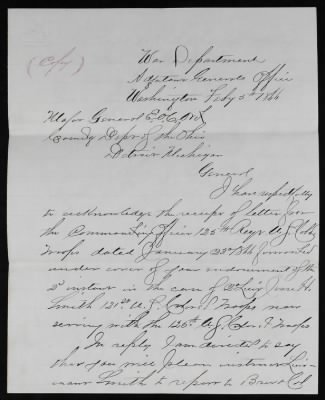 (Copy)
War Department
Adjutant Generals Office
Washington Feby 5th 1866
Major General E.O.C. Ord
Comdg Dept of the Ohio
Detroit Michigan
General
I have respectfully
to acknowledge the receipt of letter from
the Commanding Officer 125th Regt U.S. Cold
Troops dated January 23d 1866 forwarded
under cover of your endorsement of the
2d instant in the case of 2d Lieut
Smith 121st U.S. Cold Troops now
serving with the 125th U.S. Cold Troops
In reply I am directed to say
that you will please instruct Lieu-
tenant Smith to report to Brevt Col